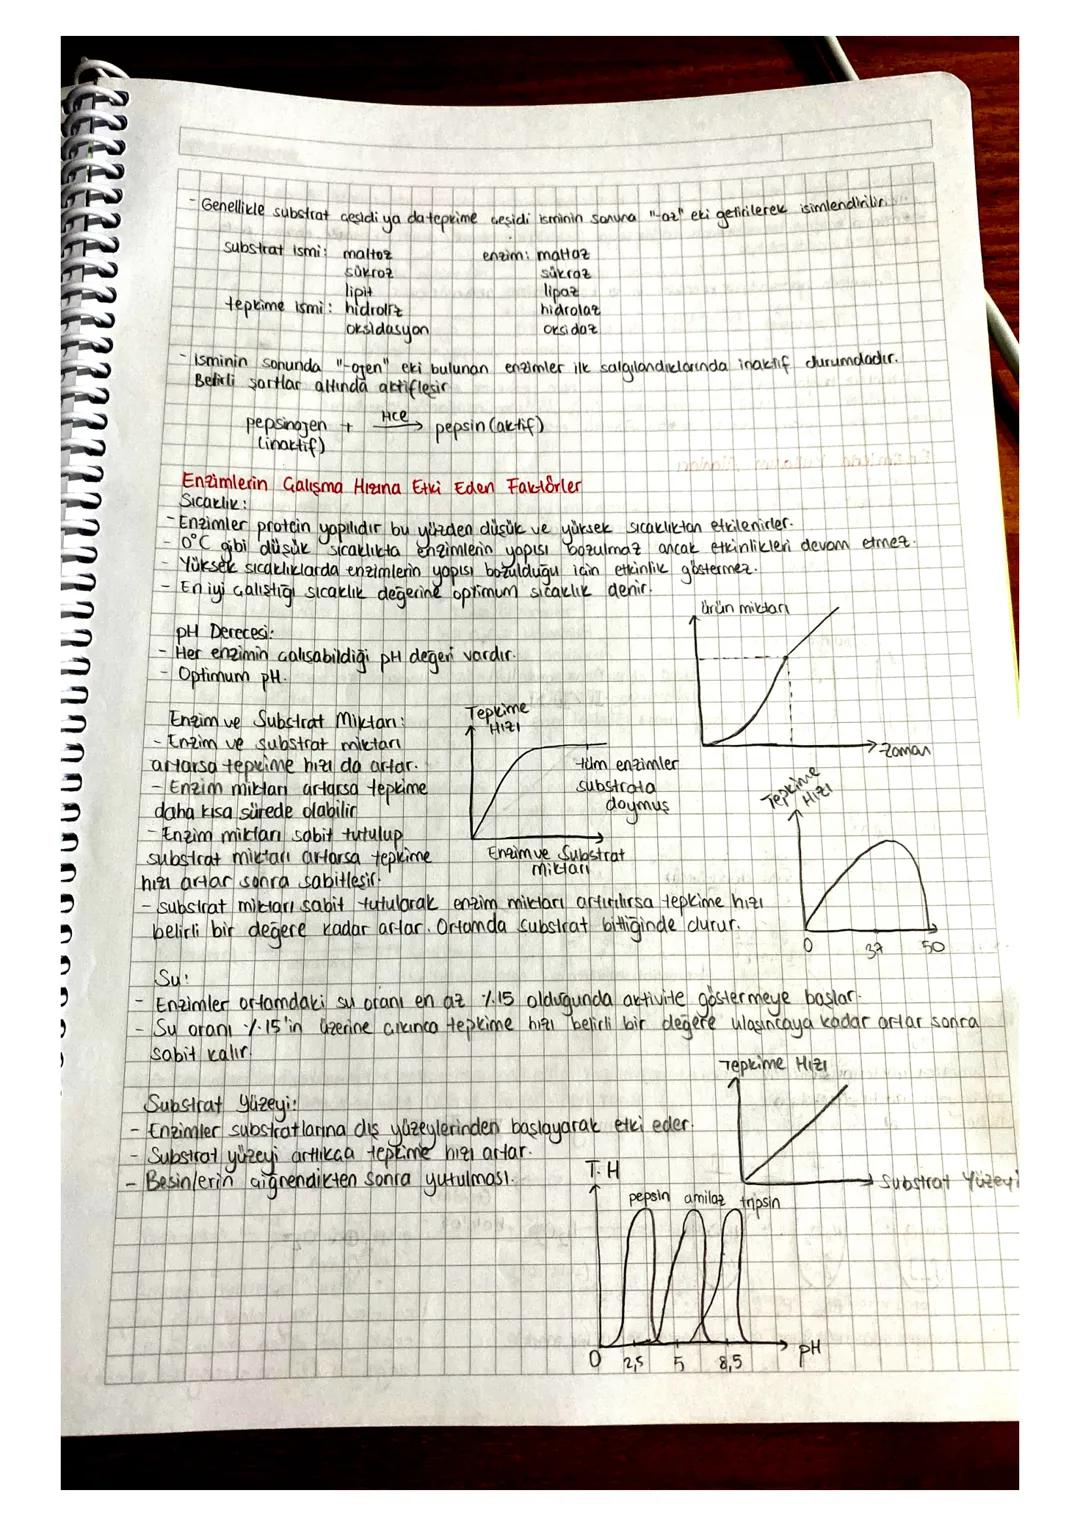 - Genellikle substrat çeşidi ya da tepkime çeşidi isminin sonuna "-az" eki getirilerek isimlendirilir.
substrat ismi: maltoz enzim: maltaz
sükroz sükraz
lipit lipaz
tepkime ismi: hidroliz hidrolaz
oksidasyon oksidaz
- isminin sonunda "-ojen" eki bulunan enzimler ilk salgılandıklarında inaktif durumdadır.
Belirli şartlar altında aktifleşir
pepsinojen + HCl → pepsin (aktif)
(inaktif)
Enzimlerin Çalışma Hızına Etki Eden Faktörler
Sıcaklık:
- Enzimler protein yapılıdır bu yüzden düşük ve yüksek sıcaklıktan etkilenirler.
- 0°C gibi düşük sıcaklıkta enzimlerin yapısı bozulmaz ancak etkinlikleri devam etmez.
- Yüksek sıcaklıklarda enzimlerin yapısı bozulduğu için etkinlik göstermez.
- En iyi çalıştığı sıcaklık değerine optimum sıcaklık denir.
ürün miktarı
Zaman
pH Derecesi:
- Her enzimin çalışabildiği pH değeri vardır.
- Optimum pH.
Enzim ve Substrat Miktarı:
- Enzim ve substrat miktarı
artarsa tepkime hızı da artar.
- Enzim miktarı artarsa tepkime
daha kısa sürede olabilir
- Enzim miktarı sabit tutulup
substrat miktarı artarsa tepkime
hızı artar sonra sabitleşir.
- substrat miktarı sabit tutularak enzim miktarı artırılırsa tepkime hızı
belirli bir değere kadar artar. Ortamda substrat bittiğinde durur.
Tepkime
Hızı
tüm enzimler
substrata
doymuş
Enzim ve Substrat
Miktarı
Tepkime
Hızı
0 37 50
Su:
- Enzimler ortamdaki su oranı en az %15 olduğunda aktivite göstermeye başlar.
- Su oranı %15'in üzerine çıkınca tepkime hızı belirli bir değere ulaşıncaya kadar artar sonra
sabit kalır.
Substrat Yüzeyi:
- Enzimler substratlarına dış yüzeylerinden başlayarak etki eder.
- Substrat yüzeyi arttıkça tepkime hızı artar.
- Besinlerin çiğnendikten sonra yutulması.
Tepkime Hızı
Substrat Yüzeyi
T.H
pepsin amilaz tripsin
0 2,5 5 8,5 pH